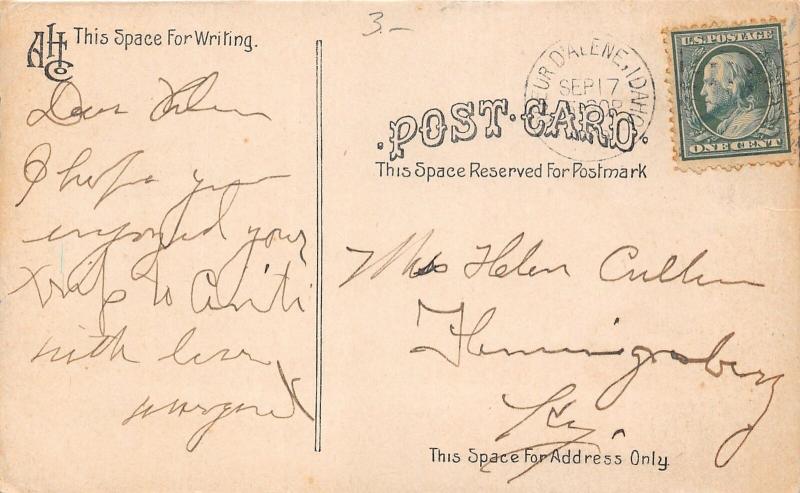 AHCo
This Space For Writing.
3.-
Dear Helen
I hope you
enjoyed your
trip to Cinti
with love
Margaret
POST CARD.
This Space Reserved For Postmark
EUR D'ALENE, IDAHO
SEP 17
U.S. POSTAGE
ONE CENT
Miss Helen Cullen
Flemingsburg
Ky.
This Space For Address Only.